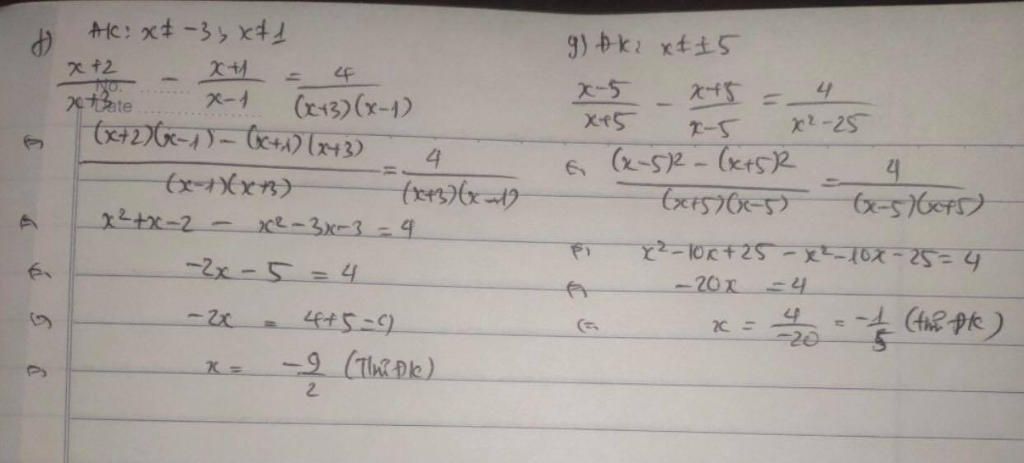 f) ĐK: x ≠ -3; x ≠ 1
x+2/x+3 - x+1/x-1 = 4/(x+3)(x-1)
No.
Date
⇔ (x+2)(x-1) - (x+1)(x+3)/(x-1)(x+3) = 4/(x+3)(x-1)
⇔ x²+x-2 - x²-3x-3 = 4
⇔ -2x - 5 = 4
⇔ -2x = 4+5=9
⇔ x = -9/2 (TMĐK)
g) ĐK: x ≠ ±5
x-5/x+5 - x+5/x-5 = 4/x²-25
⇔ (x-5)² - (x+5)²/(x+5)(x-5) = 4/(x-5)(x+5)
⇔ x²-10x+25 - x²-10x-25 = 4
⇔ -20x = 4
⇔ x = 4/-20 = -1/5 (tmĐK)